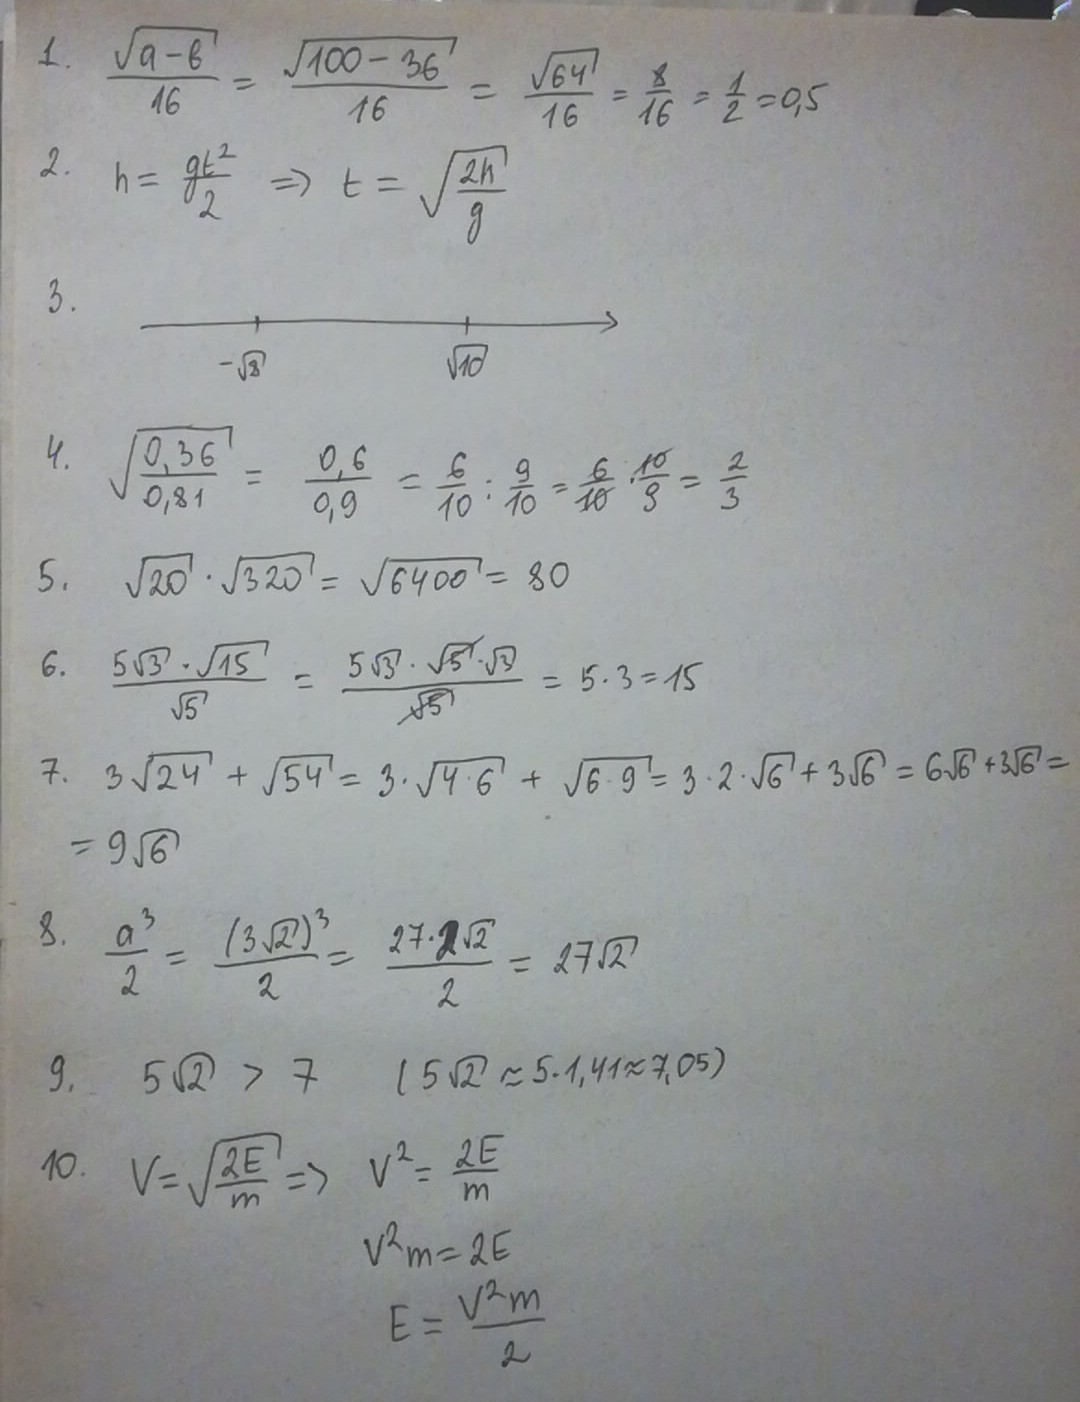 1. √(a-в)/16 = √(100-36)/16 = √64/16 = 8/16 = 1/2 = 0,5
2. h = gt²/2 => t = √(2h/g)
3.
-√8 √10
4. √(0,36/0,81) = 0,6/0,9 = 6/10 : 9/10 = 6/10 · 10/9 = 2/3
5. √20 · √320 = √6400 = 80
6. 5√3 · √15/√5 = 5√3 · √5 · √3/√5 = 5 · 3 = 15
7. 3√24 + √54 = 3 · √(4·6) + √(6·9) = 3 · 2 · √6 + 3√6 = 6√6 + 3√6 =
= 9√6
8. a³/2 = (3√2)³/2 = 27·2√2/2 = 27√2
9. 5√2 > 7 (5√2 ≈ 5·1,41 ≈ 7,05)
10. V = √(2E/m) => V² = 2E/m
V²m = 2E
E = V²m/2